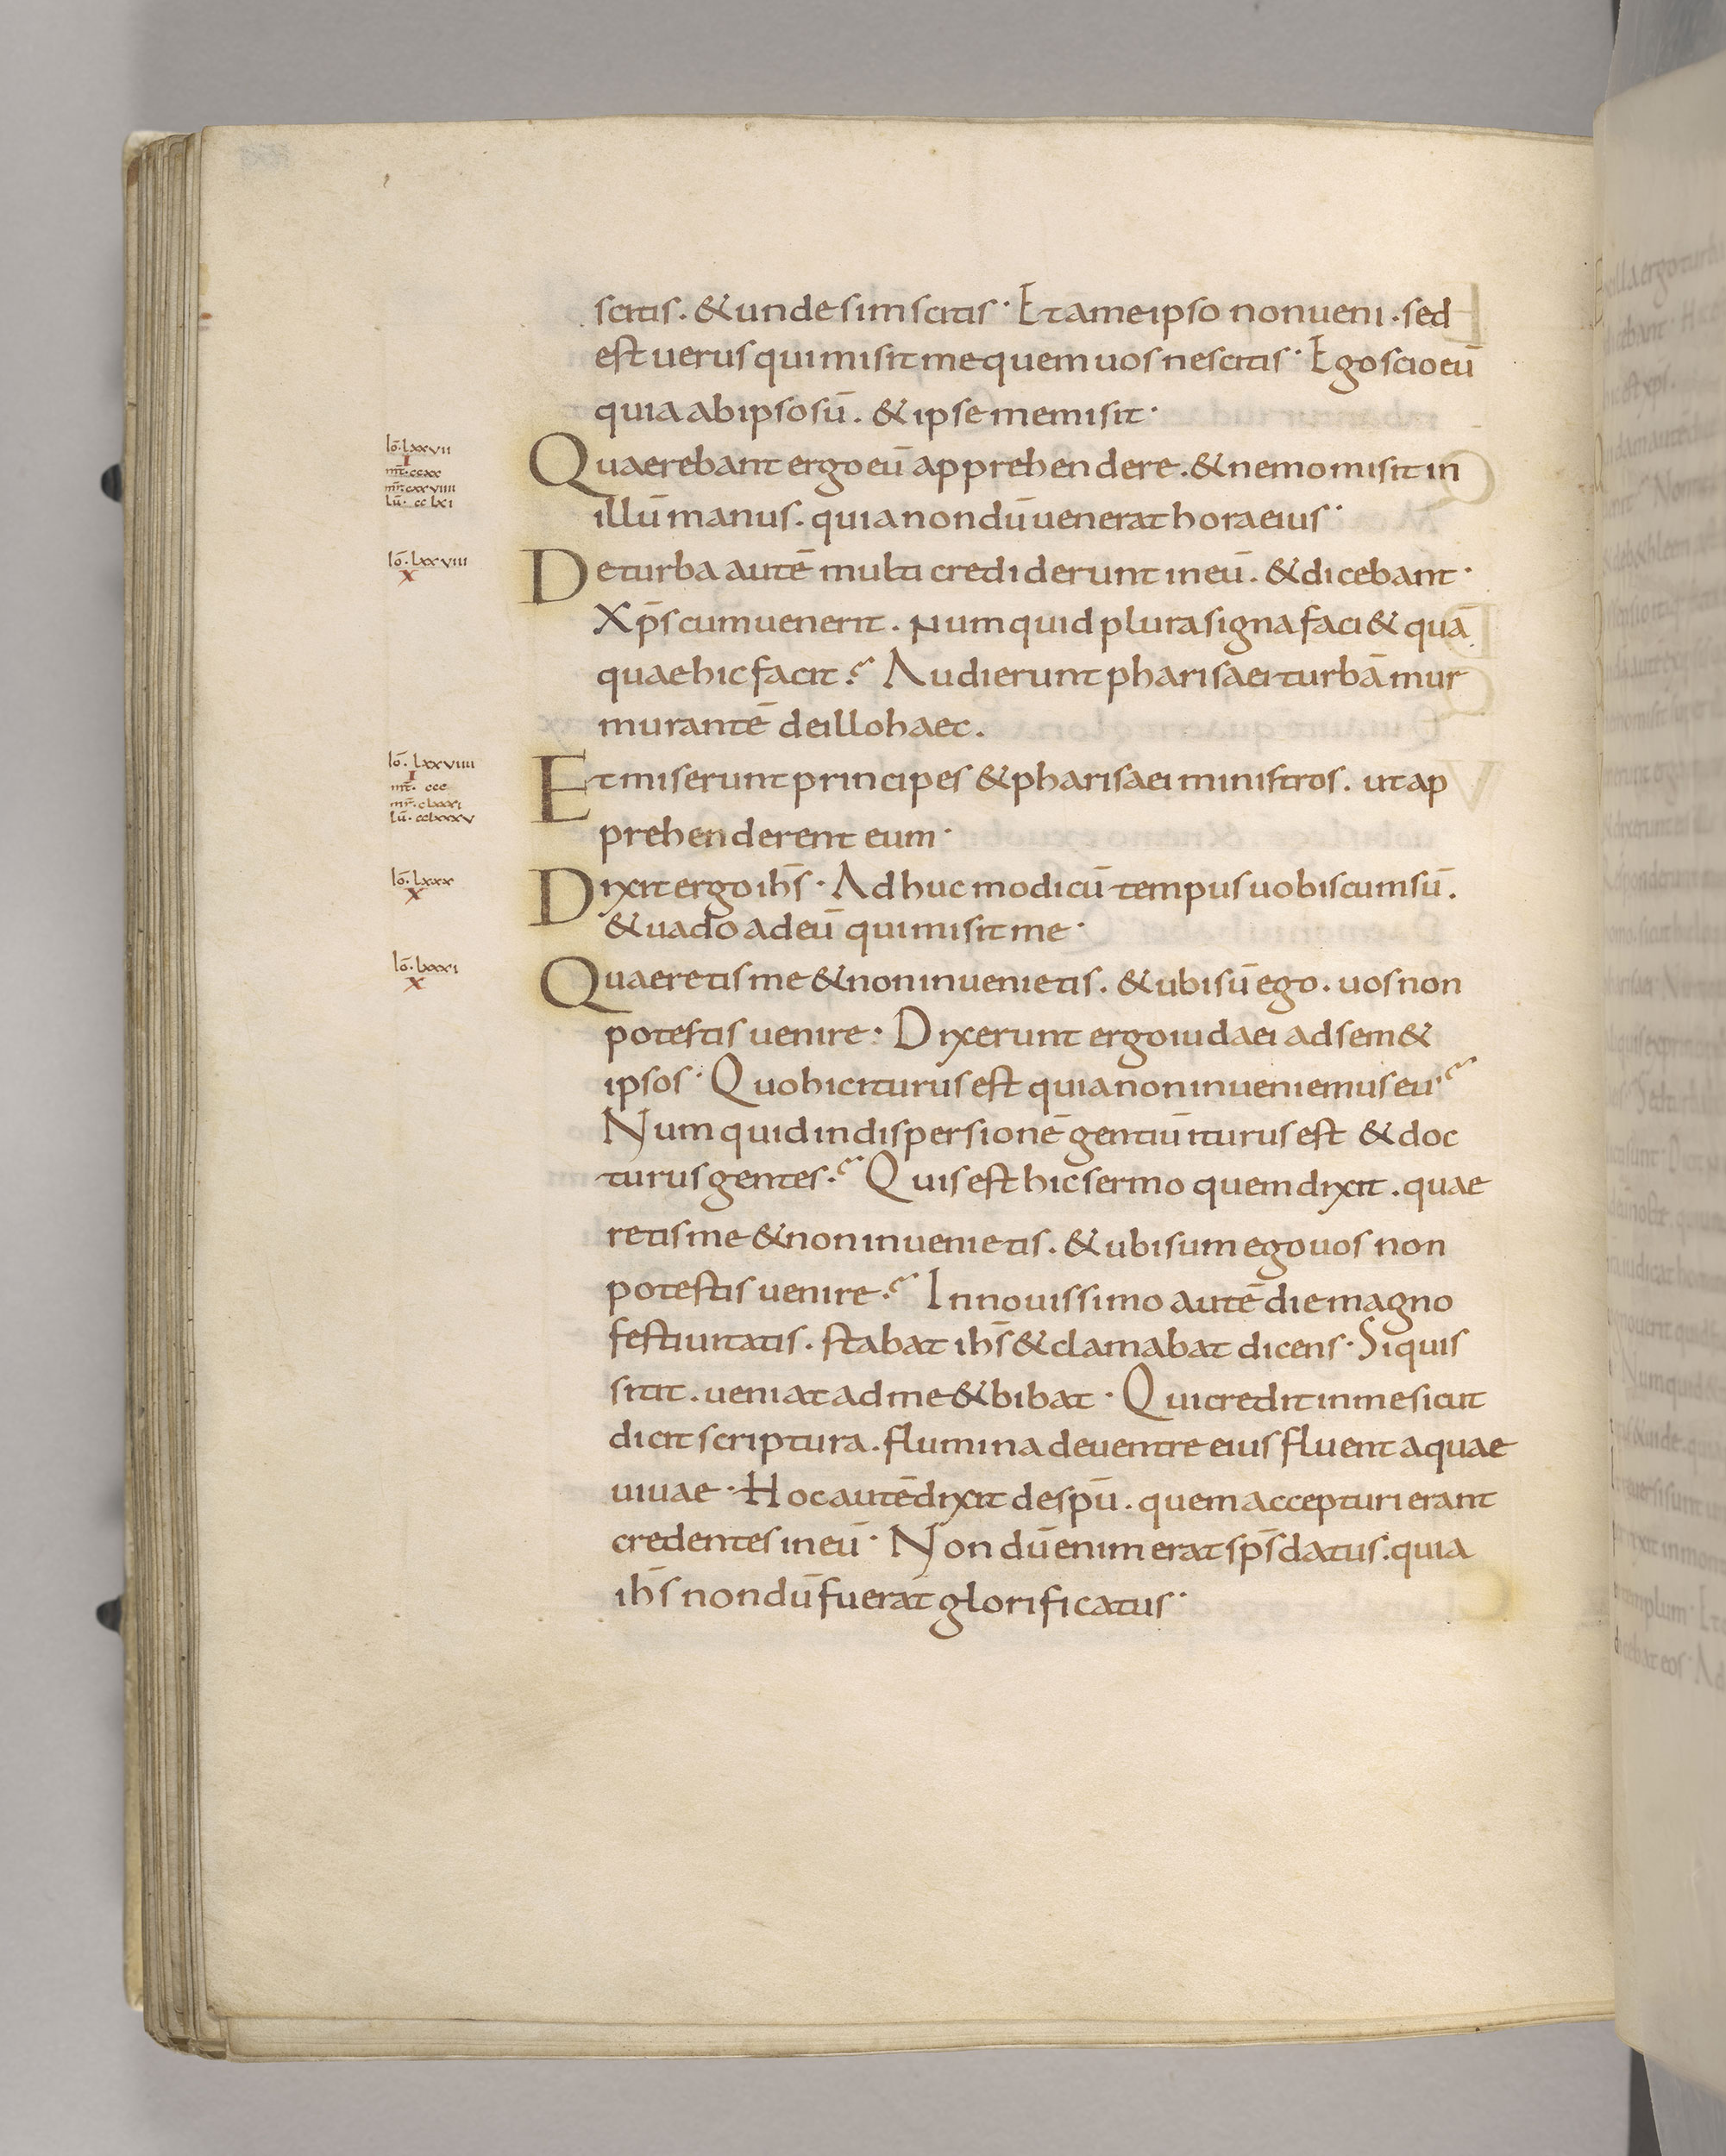 scitis. & unde sim scitis· Et a me ipso non ueni. sed
est uerus qui misit me quem uos nescitis· Ego scio eū
quia ab ipso sū. & ipse me misit·
iō·lxxvii
I
mt̄·ccxx
mr̄·cxxviiii
lū·cclxi
Quaerebant ergo eū apprehendere. & nemo misit in
illū manus. quia nondū uenerat hora eius·
iō·lxxviii
X
De turba autē multi crediderunt in eū. & dicebant·
Xp̄s cum uenerit. Numquid plura signa faci& quā
quae hic facit? Audierunt pharisaei turbā mur
murantē de illo haec.
iō·lxxviiii
I
mt̄·ccc
mr̄·clxxxi
lū·cclxxxv
Et miserunt principes & pharisaei ministros. ut ap
prehenderent eum·
iō·lxxx
X
Dixit ergo ih̄s· Adhuc modicū tempus uobiscum sū.
& uado ad eū qui misit me·
iō·lxxxi
X
Quaeretis me & non inuenietis. & ubi sū ego. uos non
potestis uenire· Dixerunt ergo iudaei ad sem&
ipsos· Quo hic iturus est quia non inueniemus eū?
Numquid in dispersionē gentiū iturus est & doc
turus gentes? Quis est hic sermo quem dixit. quae
retis me & non inuenietis. & ubi sum ego uos non
potestis uenire? In nouissimo autē die magno
festiuitatis. stabat ih̄s & clamabat dicens· Si quis
sitit. ueniat ad me & bibat· Qui credit in me sicut
dicit scriptura. flumina de uentre eius fluent aquae
uiuae· Hoc autē dixit de sp̄u. quem accepturi erant
credentes in eū· Nondū enim erat sp̄s datus. quia
ih̄s nondū fuerat glorificatus·